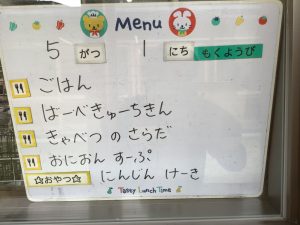 Menu
5 がつ 1 にち もくようび
ごはん
ばーべきゅーちきん
きゃべつ の さらだ
おにおん すーぷ
☆おやつ☆ にんじん けーき
Tasty Lunch Time